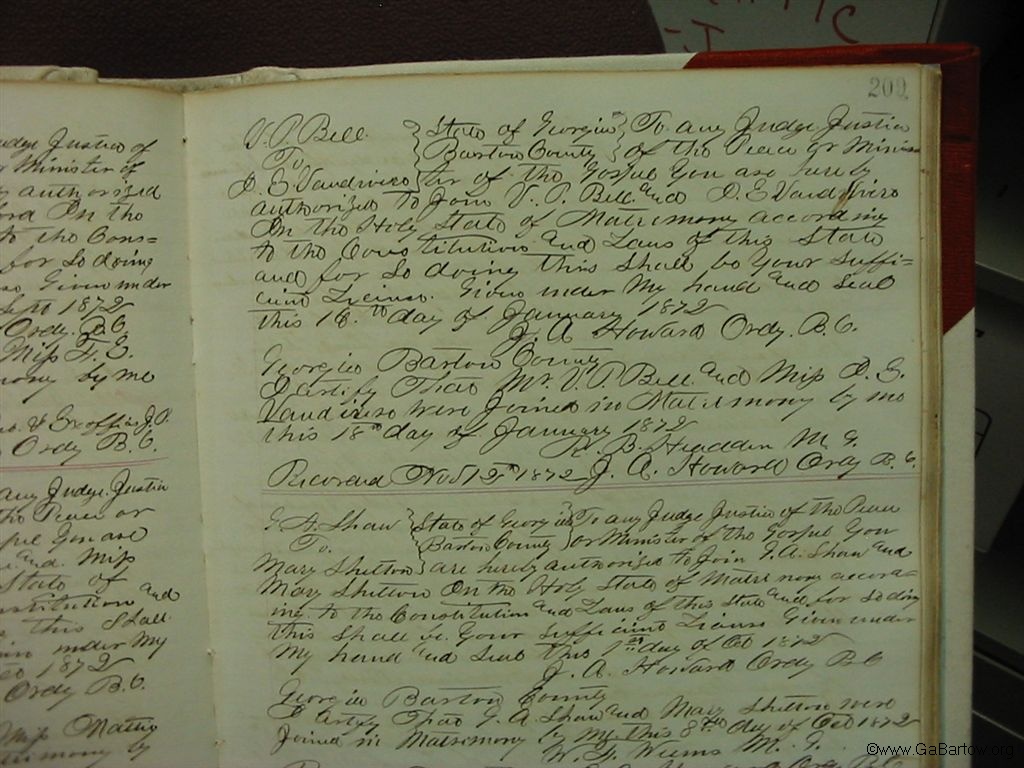 202
V. P. Bell State of Georgia To any Judge Justice
To Bartow County of the Peace or Minis
D. E. Vandiviro ter of the Gospel You are hereby
authorized to Join V. P. Bell and D. E Vandiviro
In the Holy State of Matrimony according
to the Constitution and Laws of this State
and for so doing this shall be your suffi=
cient License. Given under My hand and Seal
this 18th day of January 1872
J. A. Howard Ordy. B. C.
Georgia Bartow County
I Certify That Mr. V. P. Bell and Miss D. E.
Vandiviro were Joined in Matrimony by me
this 18th day of January 1872
B. Headden M. G.
Recorded Nov 12th 1872 J. A. Howard Ordy B. C.
J A. Shaw State of Georgia To any Judge Justice of the Peace
To. Bartow County or Minister of the Gospel You
Mary Shelton are hereby authorized to Join J. A. Shaw and
Mary Shelton On the Holy State of Matrimony accord=
ing to the Constitution and Laws of this State and for so doing
this shall be Your Sufficient License Given under
My hand and Seal this day of Oct 1872
J. A. Howard Ordy B C
Georgia Bartow County
I Certify That J. A. Shaw and Mary Shelton were
Joined in Matrimony by me this 8th day of Oct 1872
W. G. Weems M. G.
J. A. Howard Ordy B. C.
Judge Justice of
Minister of
authorized
On the
to the Cons=
for so doing
Given under
Sept 1872
Ordy. B. C.
Miss
mony by me
& Ex officio J. P.
Ordy B. C.
any Judge. Justice
the Peace or
You are
and Miss
State of
nstitution and
this Shall
under My
1872
Ordy B. C.
Miss Mattie
trimony by
©www.GaBartow.org